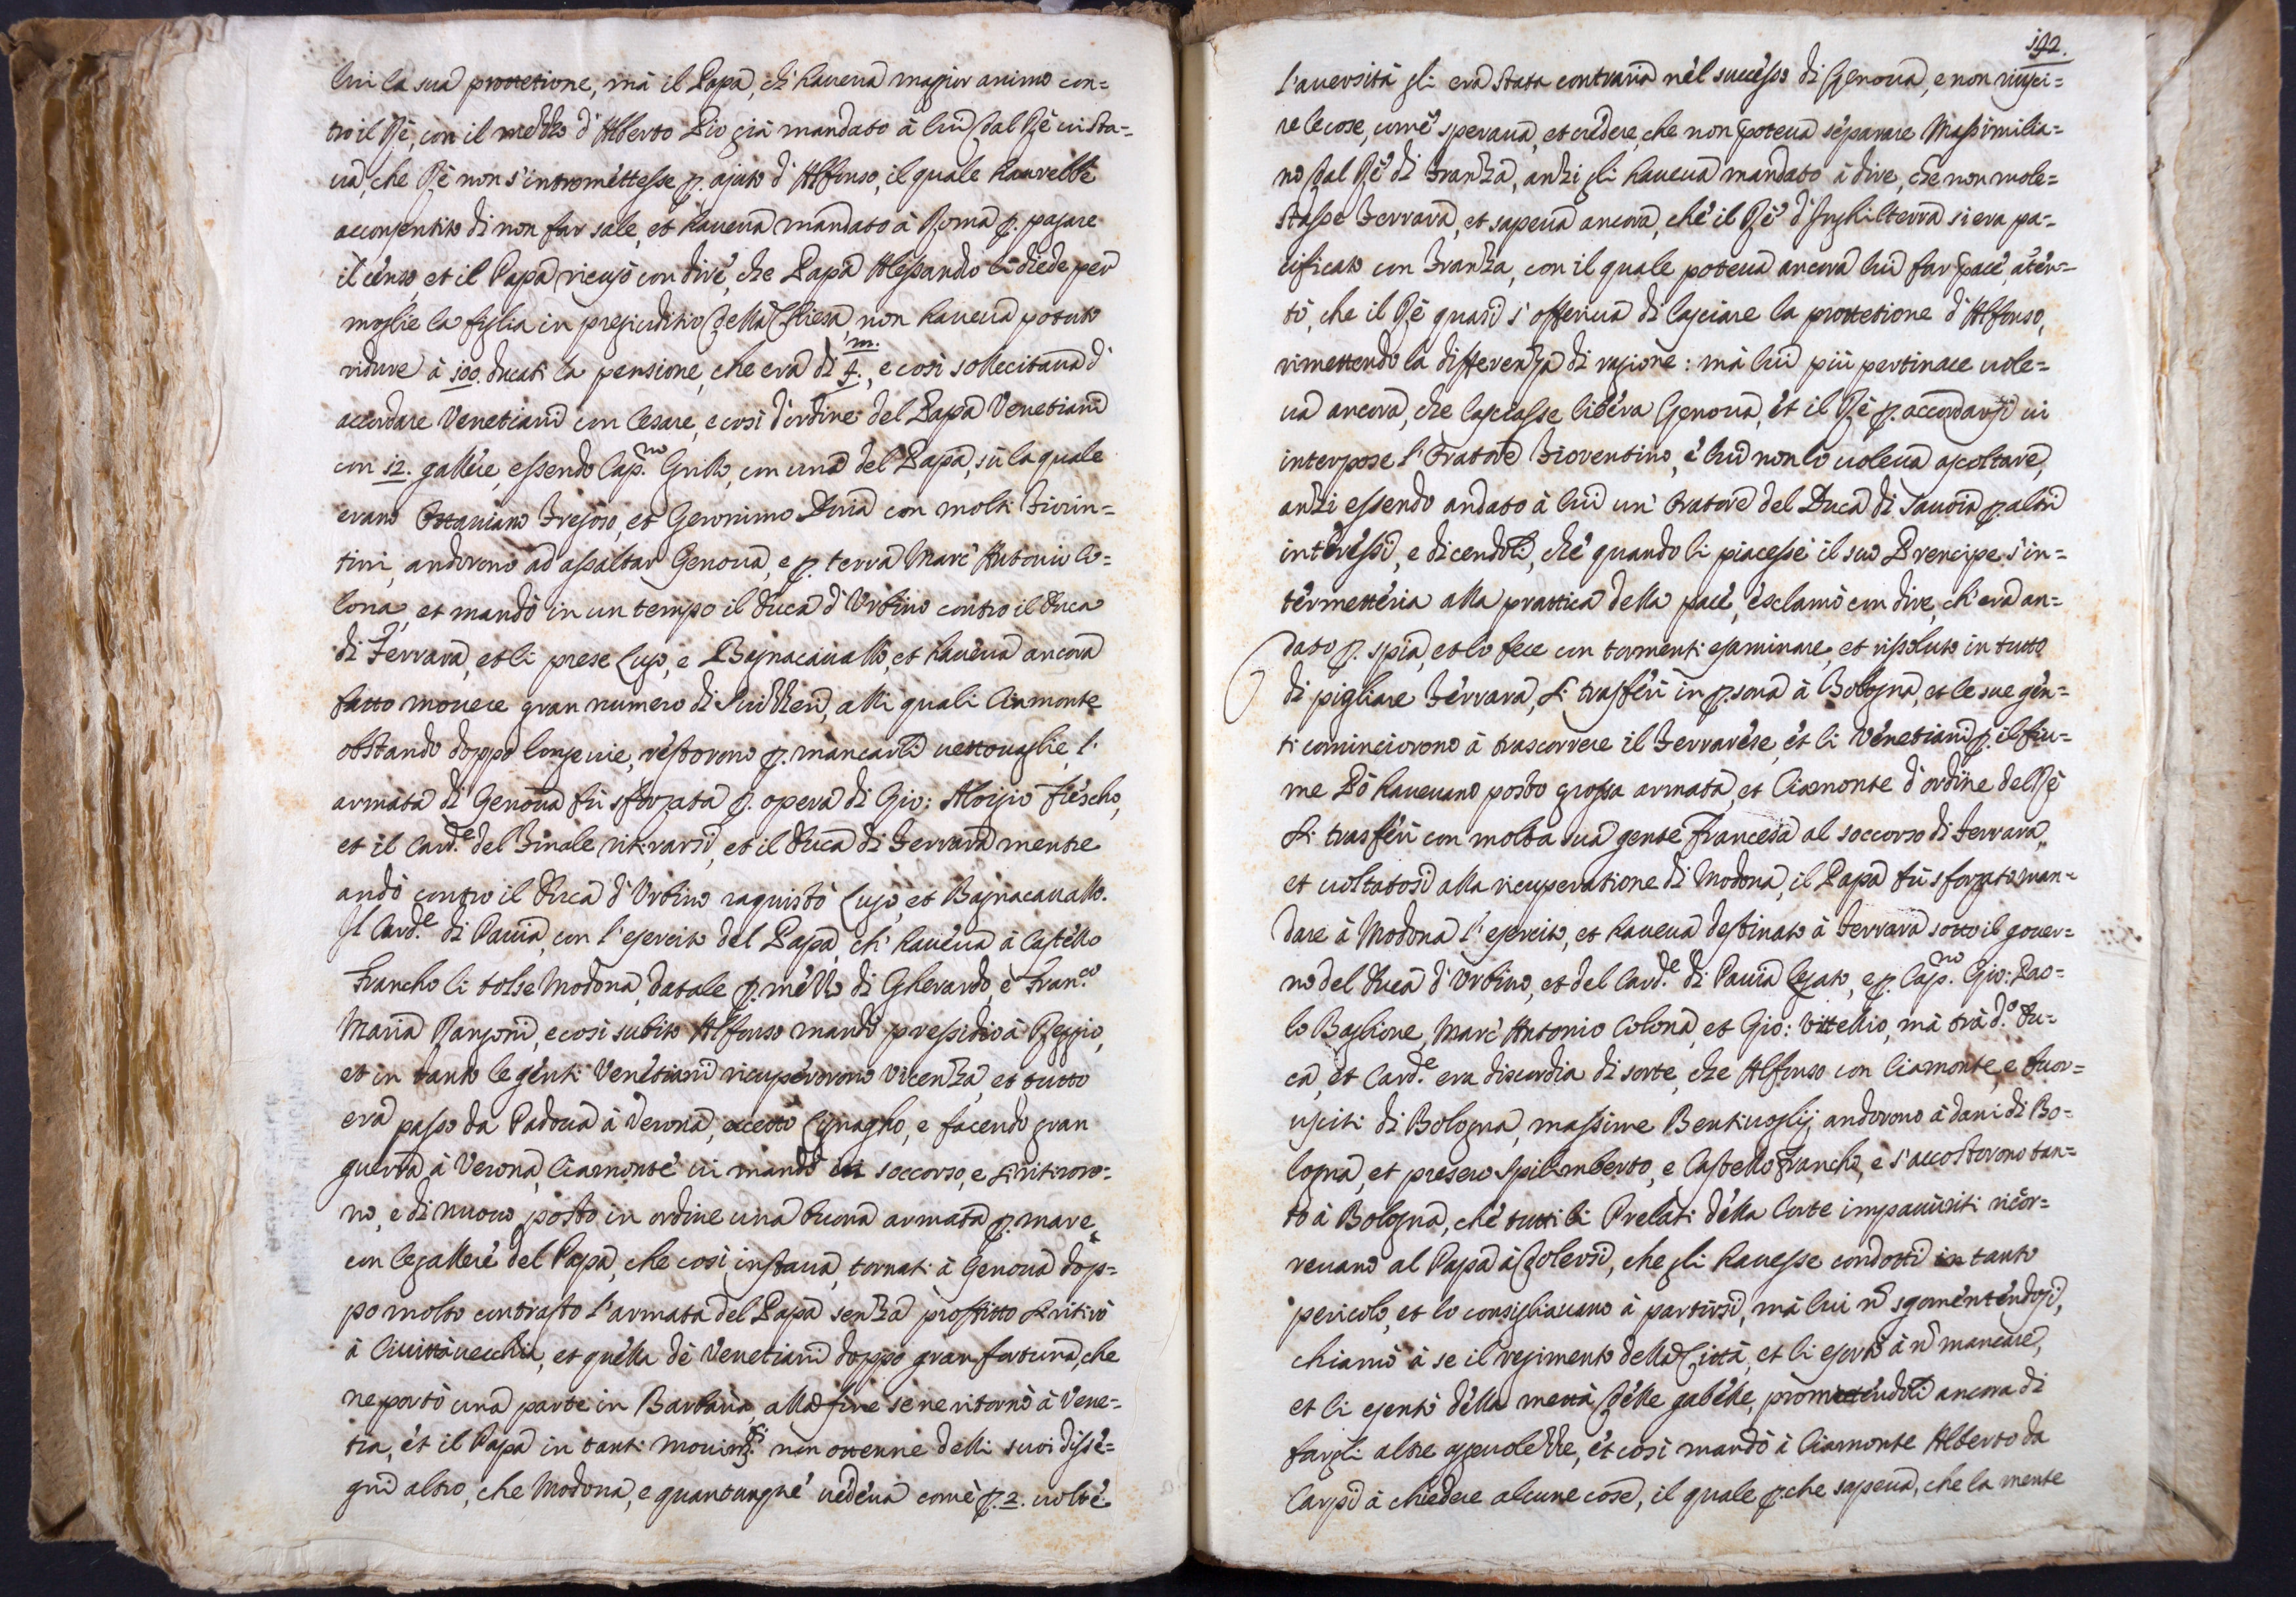 lui la sua prottetione, mà il Papa, ch' haveua magior animo con=
tro il Rè, con il mezzo d' Alberto Pio già mandato à lui dal Rè insta=
ua, che Rè non s' intromettesse p. ajuto d' Alfonso, il quale haurebbe
acconsentito di non far sale, et haueua mandato à Roma p. pagare
il censo, et il Papa ricusò con dire, che Papa Alessandro li diede per
moglie la figlia in pregiuditio della Chiesa non haueua potuto
ridure à 100. ducati la pensione, che era di 4.m, e così sollecitaua d'
accordare Venetiani con Cesare, e così d' ordine del Papa Venetiani
con 12. gallere, essendo Cap.no Grillo, con una del Papa, sù la quale
erano Ottaviano Fregoso, et Geronimo Doria con molti Fiorin=
tini, andorono ad assaltar Genoua, e p. terra Marc' Antonio Co=
lona, et mandò in un tempo il Duca d' Urbino contro il Duca
di Ferrara, et li prese Lugo, e Bagnacauallo, et haueua ancora
fatto mouere gran numero di Suizzeri, alli quali Ciamonte
obstando doppo longe uie, restorono p. mancarli uettouaglie, l'
armata di Genoua fù sforzata p. opera di Gio: Aloigio Fiescho,
et il Card.e del Finale ritirarsi, et il Duca di Ferrara mentre
andò contro il Duca d' Urbino raquistò Lugo, et Bagnacauallo.
Il Card.e di Pauia, con l' esercito del Papa, ch' haueua à Castello
Francho li tolse Modona, datale p. mezzo di Gherardo, è Fran.co
Maria Rangoni, e così subito Alfonso mandò pressidio à Reggio,
et in tanto le genti Venetiani ricuperorono Vicenza, et tutto
era passo da Padoua à Verona, eccetto Lignagho, e facendo gran
guerra à Verona, Ciamonte ui mandò in soccorso, e si ritiroro=
no, e di nuouo posto in ordine una buona armata p. mare
con le gallere del Papa, che così instaua, tornati à Genoua dop=
po molto contrasto l' armata del Papa senza proffitto si ritirò
à Ciuittàuecchia, et quella dè Venetiani doppo gran fortuna, che
ne portò una parte in Barbaria, alla fine se ne ritornò à Vene=
tia, et il Papa in tanti mouim.ti non ottenne delli suoi disse=
gni altro, che Modona, e quantunque uedeua come p. 2. uolte
192.
l' auersità gli era stata contraria nel successo di Genoua, e non riusci=
re le cose, come speraua, et credere, che non poteua separare Massimilia=
no dal Rè di Franza, anzi gli haueua mandato à dire, che non mole=
stasse Ferrara, et sapeua ancora, che il Rè d' Inghilterra si era pa=
cificato con Franza, con il quale poteua ancora lui far pace, atèn=
tò, che il Rè quasi s' offeriua di lasciare la prottetione d' Alfonso,
rimettendo la differenza di ragione: mà lui più pertinace uole=
ua ancora, che lasciasse libera Genoua, et il Rè p. accordarsi ui
interpose l' Oratore Fiorentino, è lui non lo uoleua ascoltare,
anzi essendo andato à lui un' Oratore del Duca di Sauoia p. altri
interessi, e dicendoli, che quando li piacesse il suo Prencipe s' in=
termetteria alla prattica della pace, esclamò con dire, ch' era an=
dato p. spia, et lo fece con tormenti esaminare, et rissoluto in tutto
di pigliare Ferrara, si trasferì in p.sona à Bologna, et le sue gen=
ti cominciorono à trascorrere il Ferrarese, et li Venetiani p. il fiu=
me Pò haueuano posto grossa armata, et Ciamonte d' ordine del Rè
si trasferì con molta sua gente francesa al soccorso di Ferrara,
et uoltatosi alla ricuperatione di Modona, il Papa fù sforzato man=
dare à Modona l' esercito, et haueua destinato à Ferrara sotto il gouer=
no del Duca d' Urbino, et del Card.e di Pauia Legato, e p. Cap.no Gio: Pao=
lo Baglione, Marc' Antonio Colona, et Gio: Vittellio, mà trà d.o Du=
ca, et Card.e era discordia di sorte, che Alfonso con Ciamonte, e fuor=
usciti di Bologna, massime Bentiuoglij andorono à dani di Bo=
logna, et presero Spilimberto, e Castello Francho, e s' accostorono tan=
to à Bologna, che tutti li Prelati della Corte impauriti ricor=
reuano al Papa à dolersi, che gli hauesse condotti in tanto
pericolo, et lo consigliauano à partirsi, mà lui nõ sgomentendosi,
chiamò à se il regimento della Città, et li esortò à nõ mancare,
et li esentò della mettà delle gabelle, promettendoli ancora di
fargli altre ageuolezze, et così mandò à Ciamonte Alberto da
Carpi à chiedere alcune cose, il quale p.che sapeua, che la mente